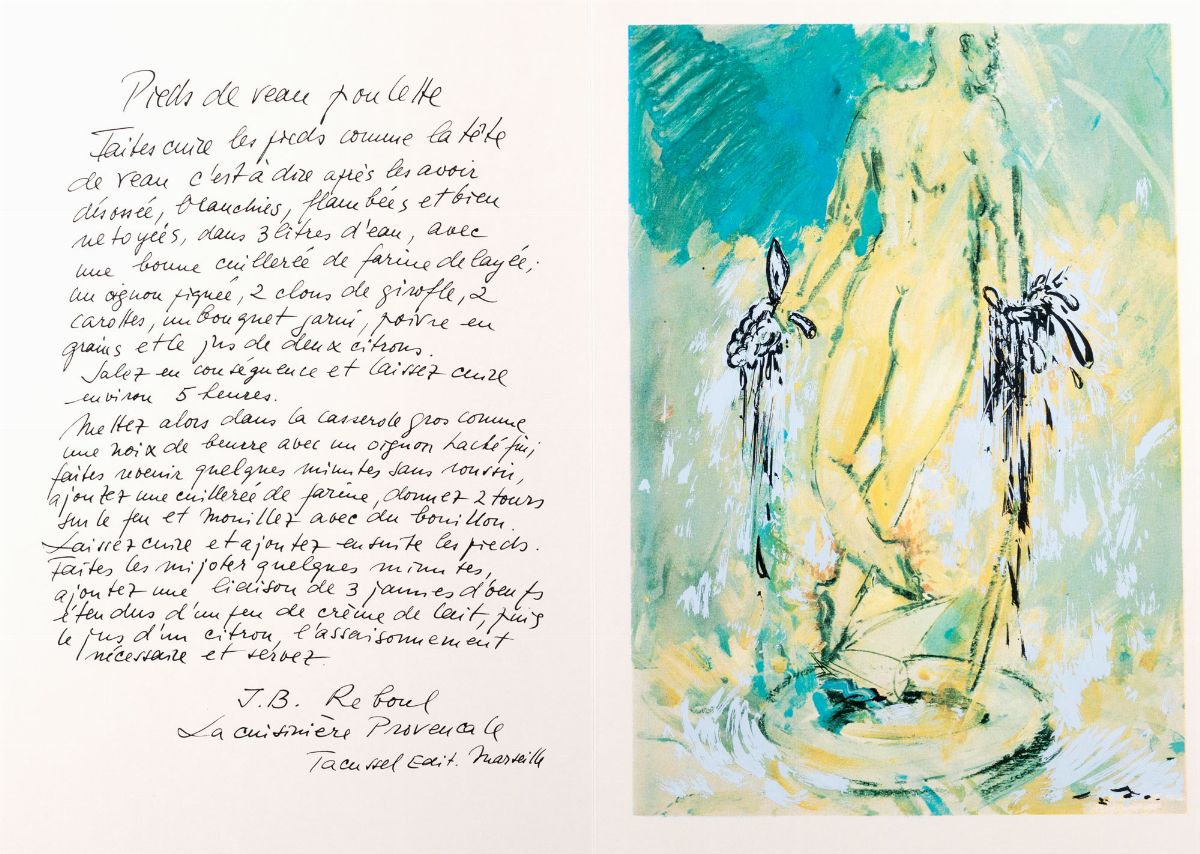 Pieds de veau poulette
Faites cuire les pieds comme la tête
de veau c'est à dire après les avoir
désossée, blanchies, flambées et bien
netoyées, dans 3 litres d'eau, avec
une bonne cuillerée de farine delayée;
un oignon piquée, 2 clous de girofle, 2
carottes, un bouquet garni, poivre en
grains et le jus de deux citrons.
Salez en conséquence et laissez cuire
environ 5 heures.
Mettez alors dans la casserole gros comme
une noix de beurre avec un oignon haché fin,
faites revenir quelques minutes sans roussir,
ajoutez une cuillerée de farine, donnez 2 tours
sur le feu et mouillez avec du bouillon.
Laissez cuire et ajoutez ensuite les pieds.
Faites les mijoter quelques minutes,
ajoutez une liaison de 3 jaunes d'oeufs
étendus d'un peu de crème de lait, puis
le jus d'un citron, l'assaisonnement
nécessaire et servez.
J.B. Reboul
La cuisinière Provencale
Tacussel Edit. Marseille